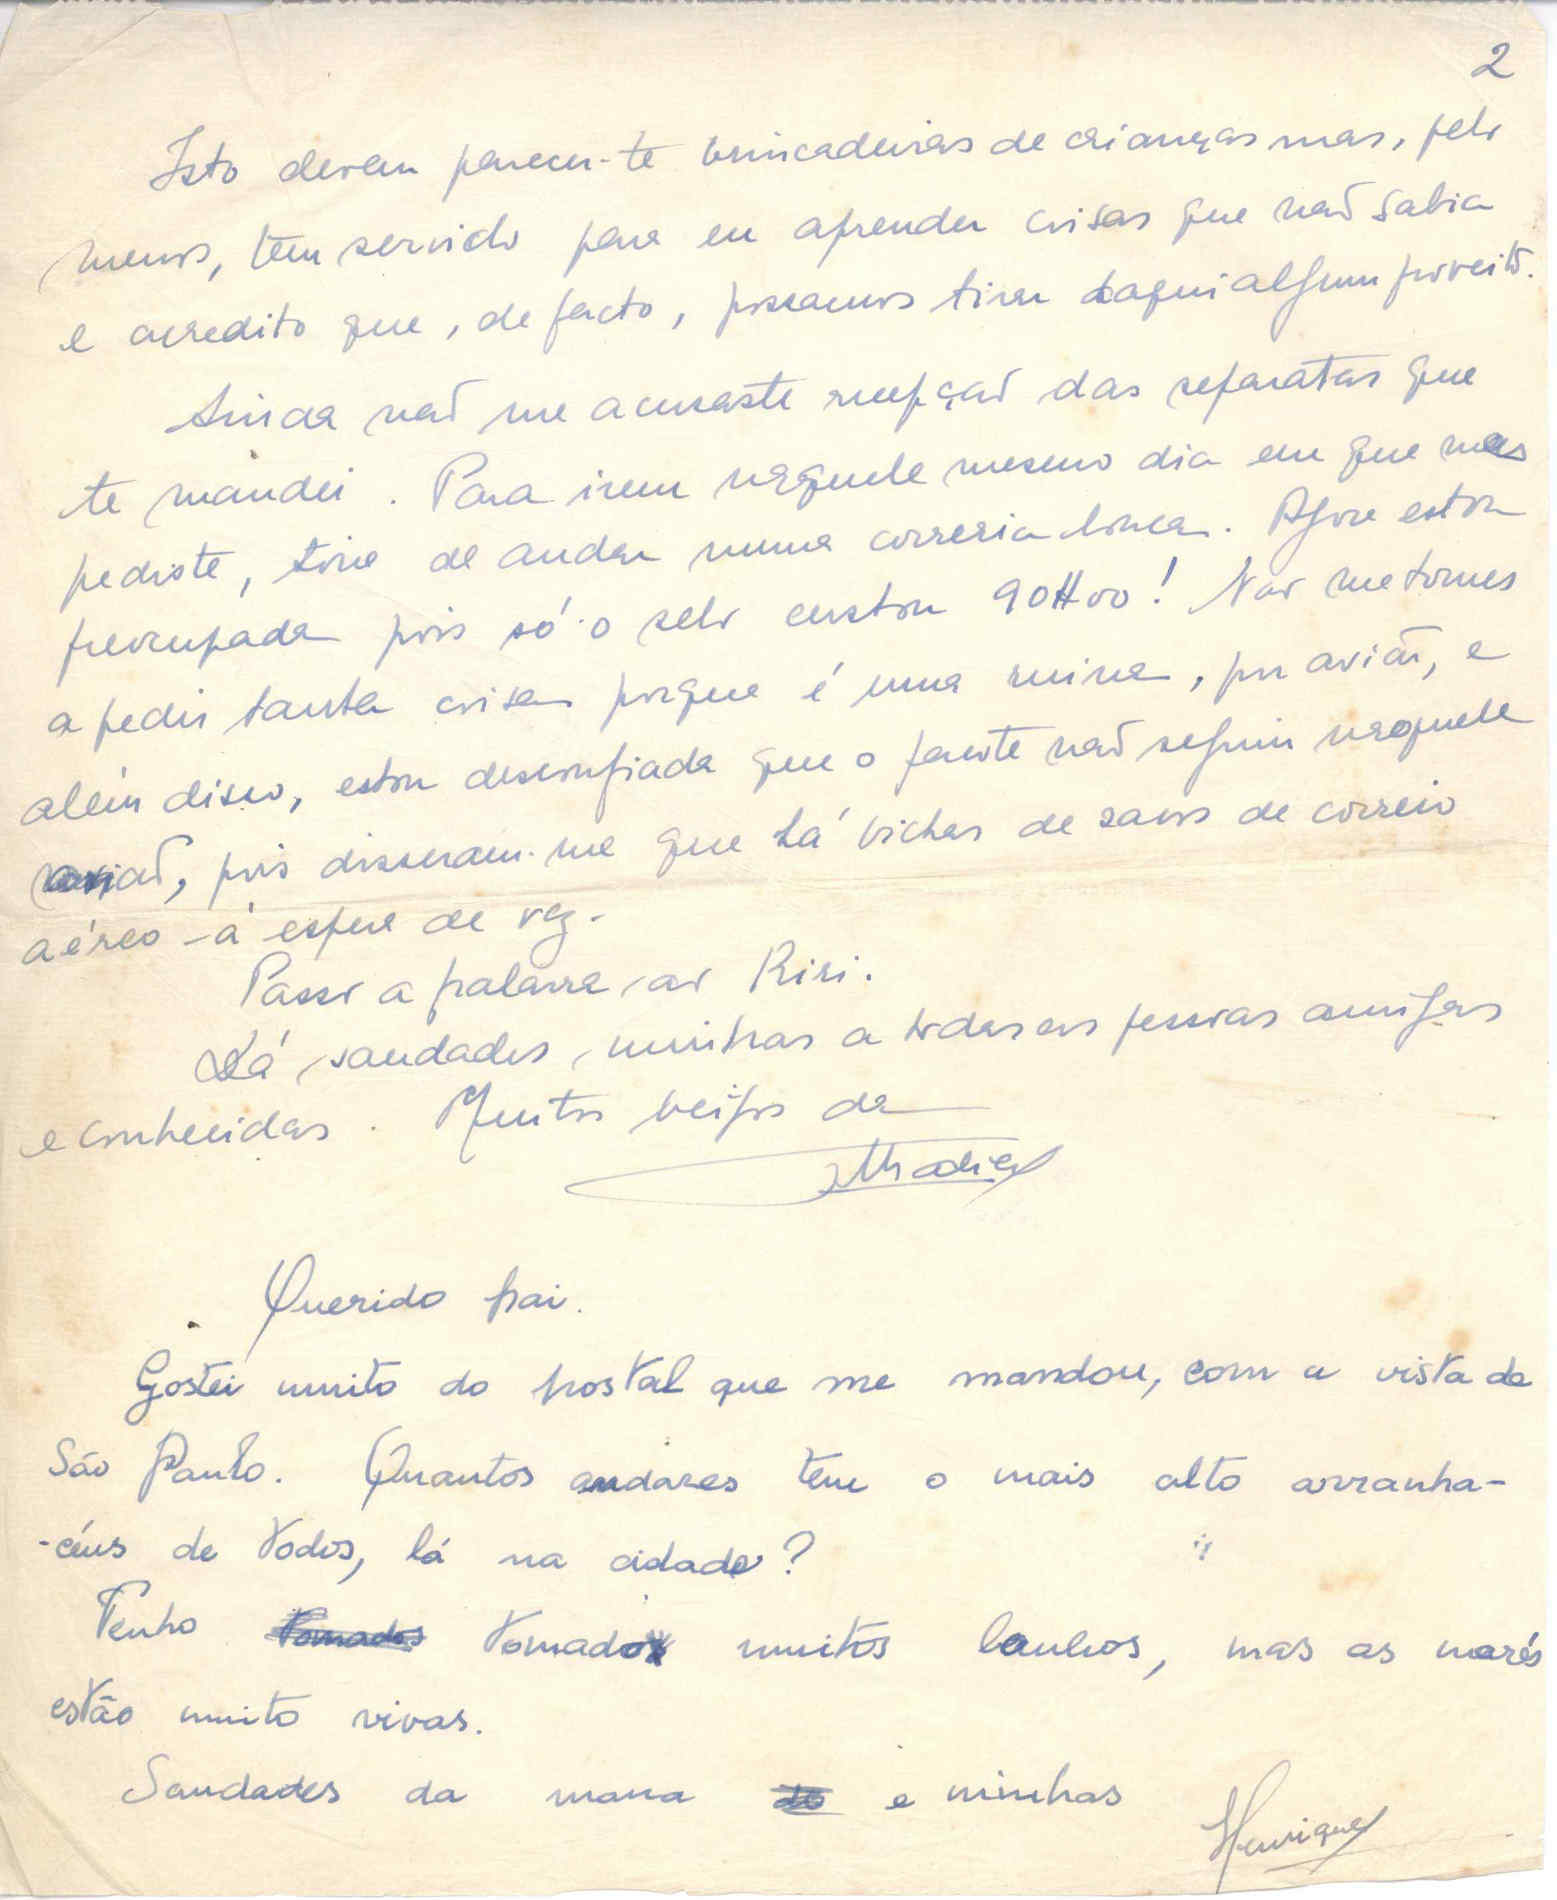 2
Isto devem parecer-te brincadeiras de crianças mas, pelo
menos, têm servido para eu aprender coisas que não sabia
e acredito que, de facto, possamos tirar daqui algum proveito.
Ainda não me acusaste recepção das separatas que
te mandei. Para irem naquele mesmo dia em que mas
pediste, tive de andar numa correria louca. Agora estou
preocupada pois só o selo custou 90$00! Não me tornes
a pedir tanta coisa porque é uma ruína, por avião, e
além disso, estou desconfiada que o pacote não seguiu naquele
avião, pois disseram-me que há bichas de sacos de correio
aéreo - à espera de vez.
Passo a palavra ao Riri.
Dá saudades minhas a todas as pessoas amigas
e conhecidas. Muitos beijos da
Querido pai.
Gostei muito do postal que me mandou, com a vista de
São Paulo. Quantos andares tem o mais alto arranha-
-céus de todos, lá na cidade?
Tenho tomados tomado muitos banhos, mas as marés
estão muito vivas.
Saudades da mana de e minhas
Henrique